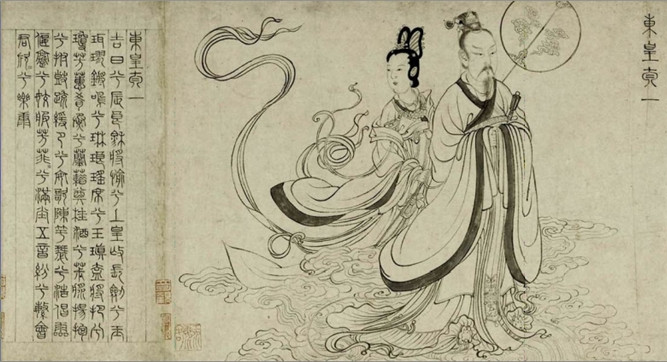 東皇太一
東皇太一
吉日兮辰良穆將愉兮上皇撫長劍兮玉
珥璆鏘鳴兮琳琅瑤席兮玉瑱盍將把兮
瓊芳蕙肴蒸兮蘭藉奠桂酒兮椒漿揚枹
兮拊鼓疏緩節兮安歌陳竽瑟兮浩倡靈
偃蹇兮姣服芳菲菲兮滿堂五音紛兮繁會
君欣欣兮樂康